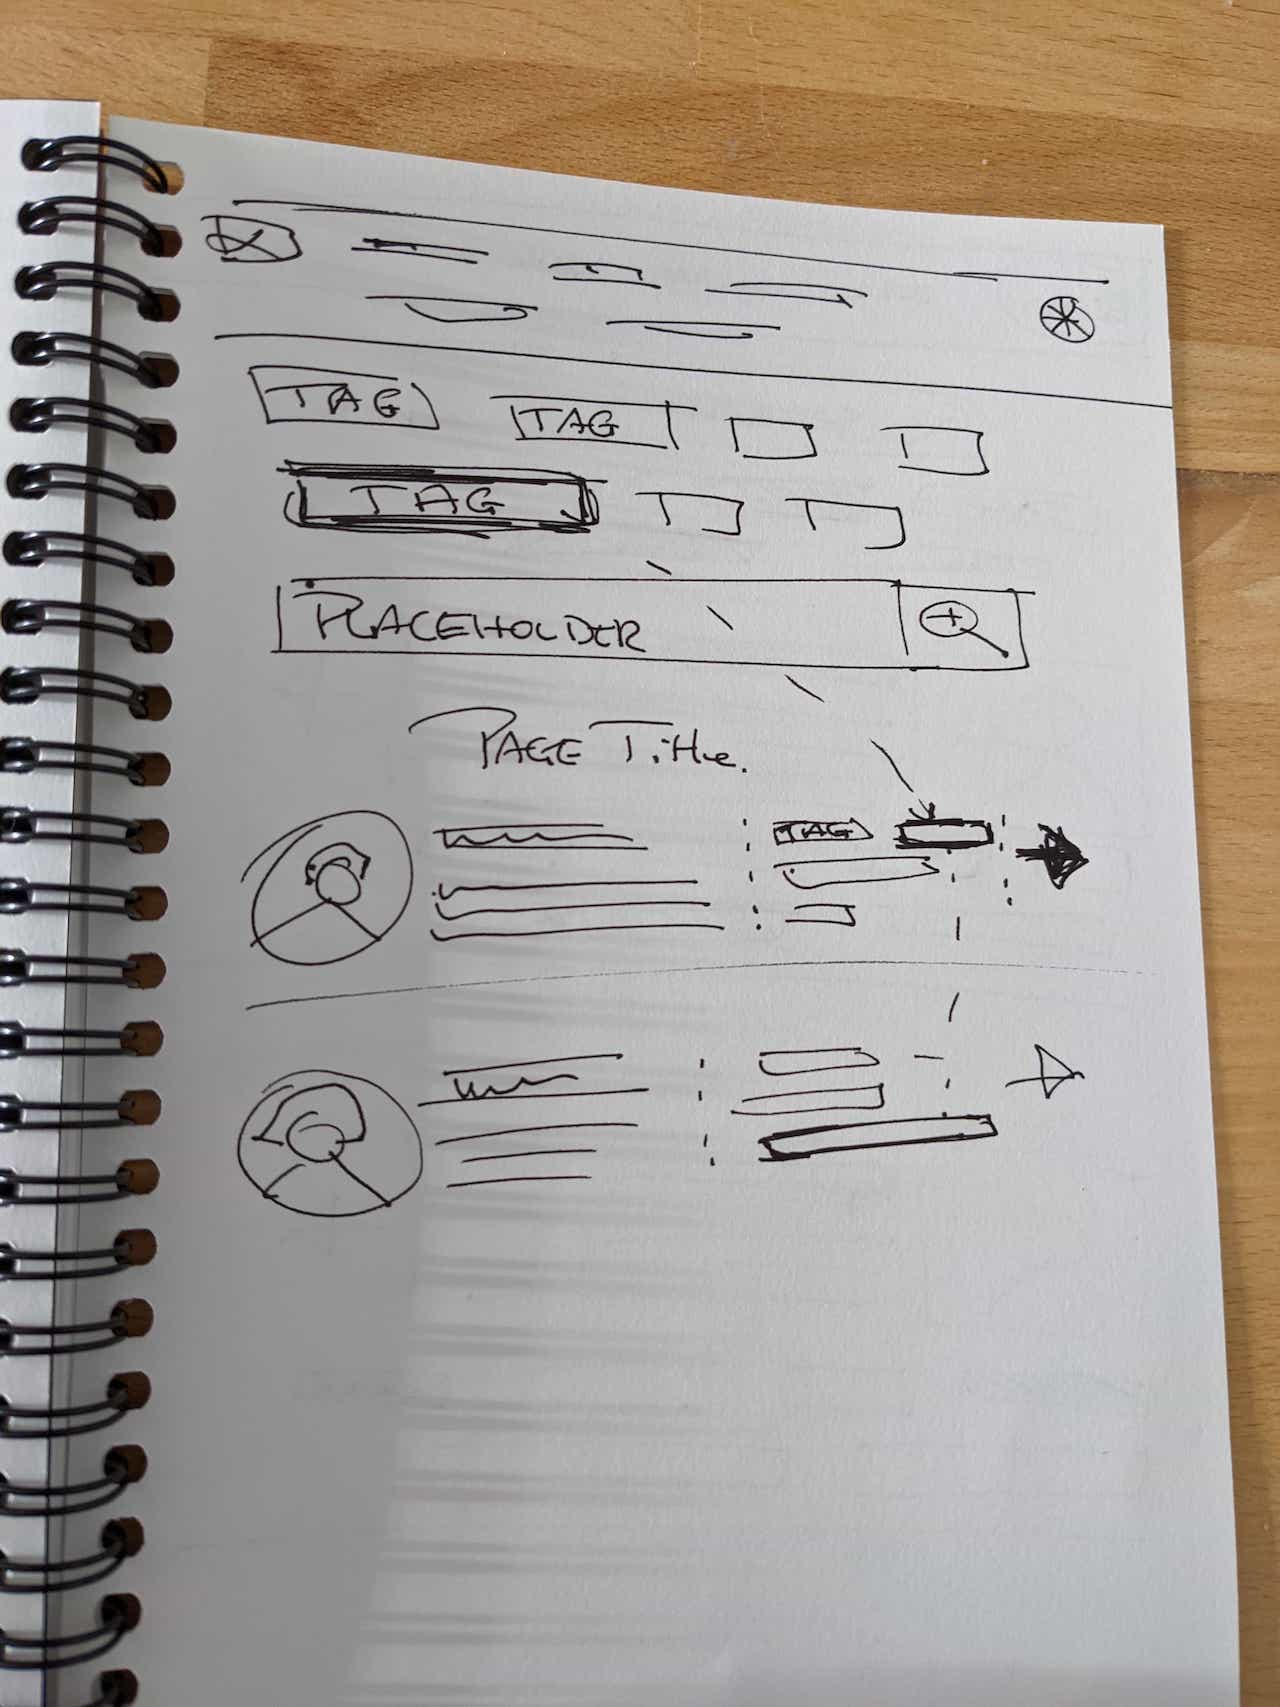 TAG TAG
TAG
PLACEHOLDER
PAGE Title.
TAG